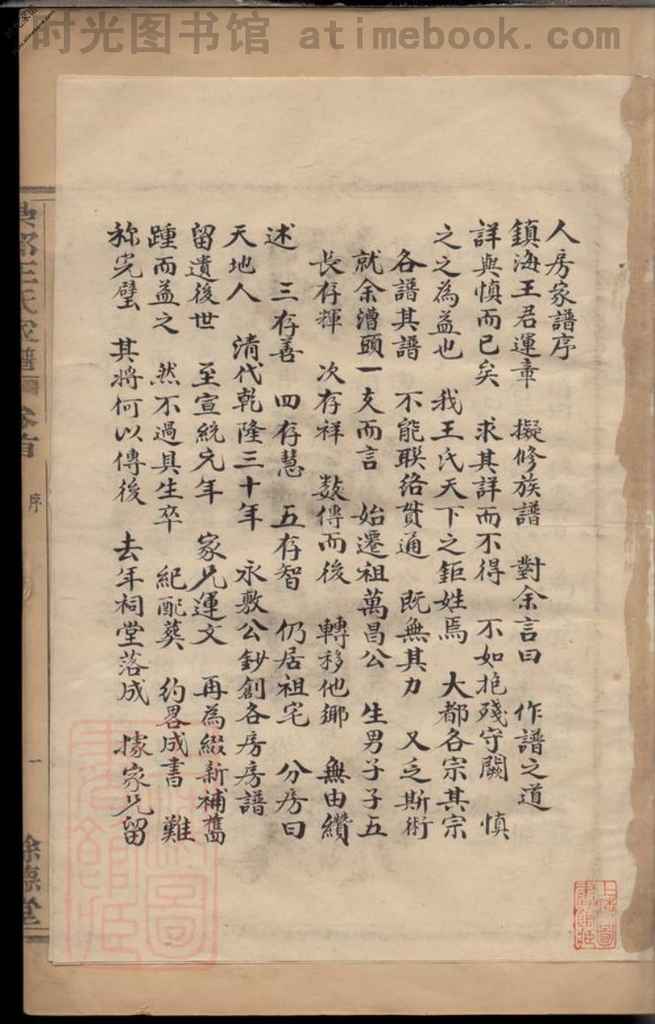 时光图书馆 atimebook.com
人房家譜序
鎮海王君運章 擬修族譜 對余言曰 作譜之道
詳與慎而已矣 求其詳而不得 不如抱殘守闕 慎
之之為益也 我王氏天下之鉅姓焉 大都各宗其宗
各譜其譜 不能聯絡貫通 既無其力 又乏斯術
就余漕頭一支而言 始遷祖萬昌公 生男子子五
長存輝 次存祥 数傳而後 轉移他鄉 無由纘
述 三存善 四存慧 五存智 仍居祖宅 分房曰
天地人 清代乾隆三十年 永敷公鈔創各房房譜
留遺後世 至宣統元年 家兄運文 再為綴新補舊
踵而益之 然不過具生卒 紀配葬 約畧成書 難
称完璧 其將何以傳後 去年祠堂落成 據家兄留
王氏家譜 卷首
序
一
餘德堂